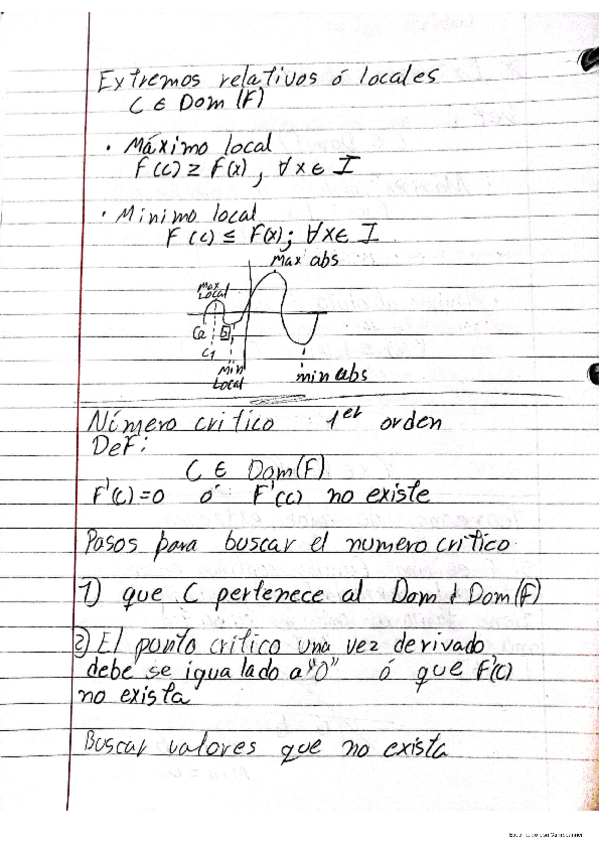 Extremos relativos ó locales
C ∈ Dom (F)
• Máximo local
F(c) ≥ F(x), ∀x ∈ I
• Minimo local
F(c) ≤ F(x); ∀x∈ I
Max abs
Max
Local
C1
Min
Local
min abs
Número critico 1er orden
DeF:
C ∈ Dom(F)
F'(c)=0 ó F'(c) no existe
Pasos para buscar el numero critico
1) que C pertenece al Dom Dom(F)
2) El punto critico una vez derivado
debe se igualado a "0" ó que F'(c)
no exista
Buscar valores que no exista